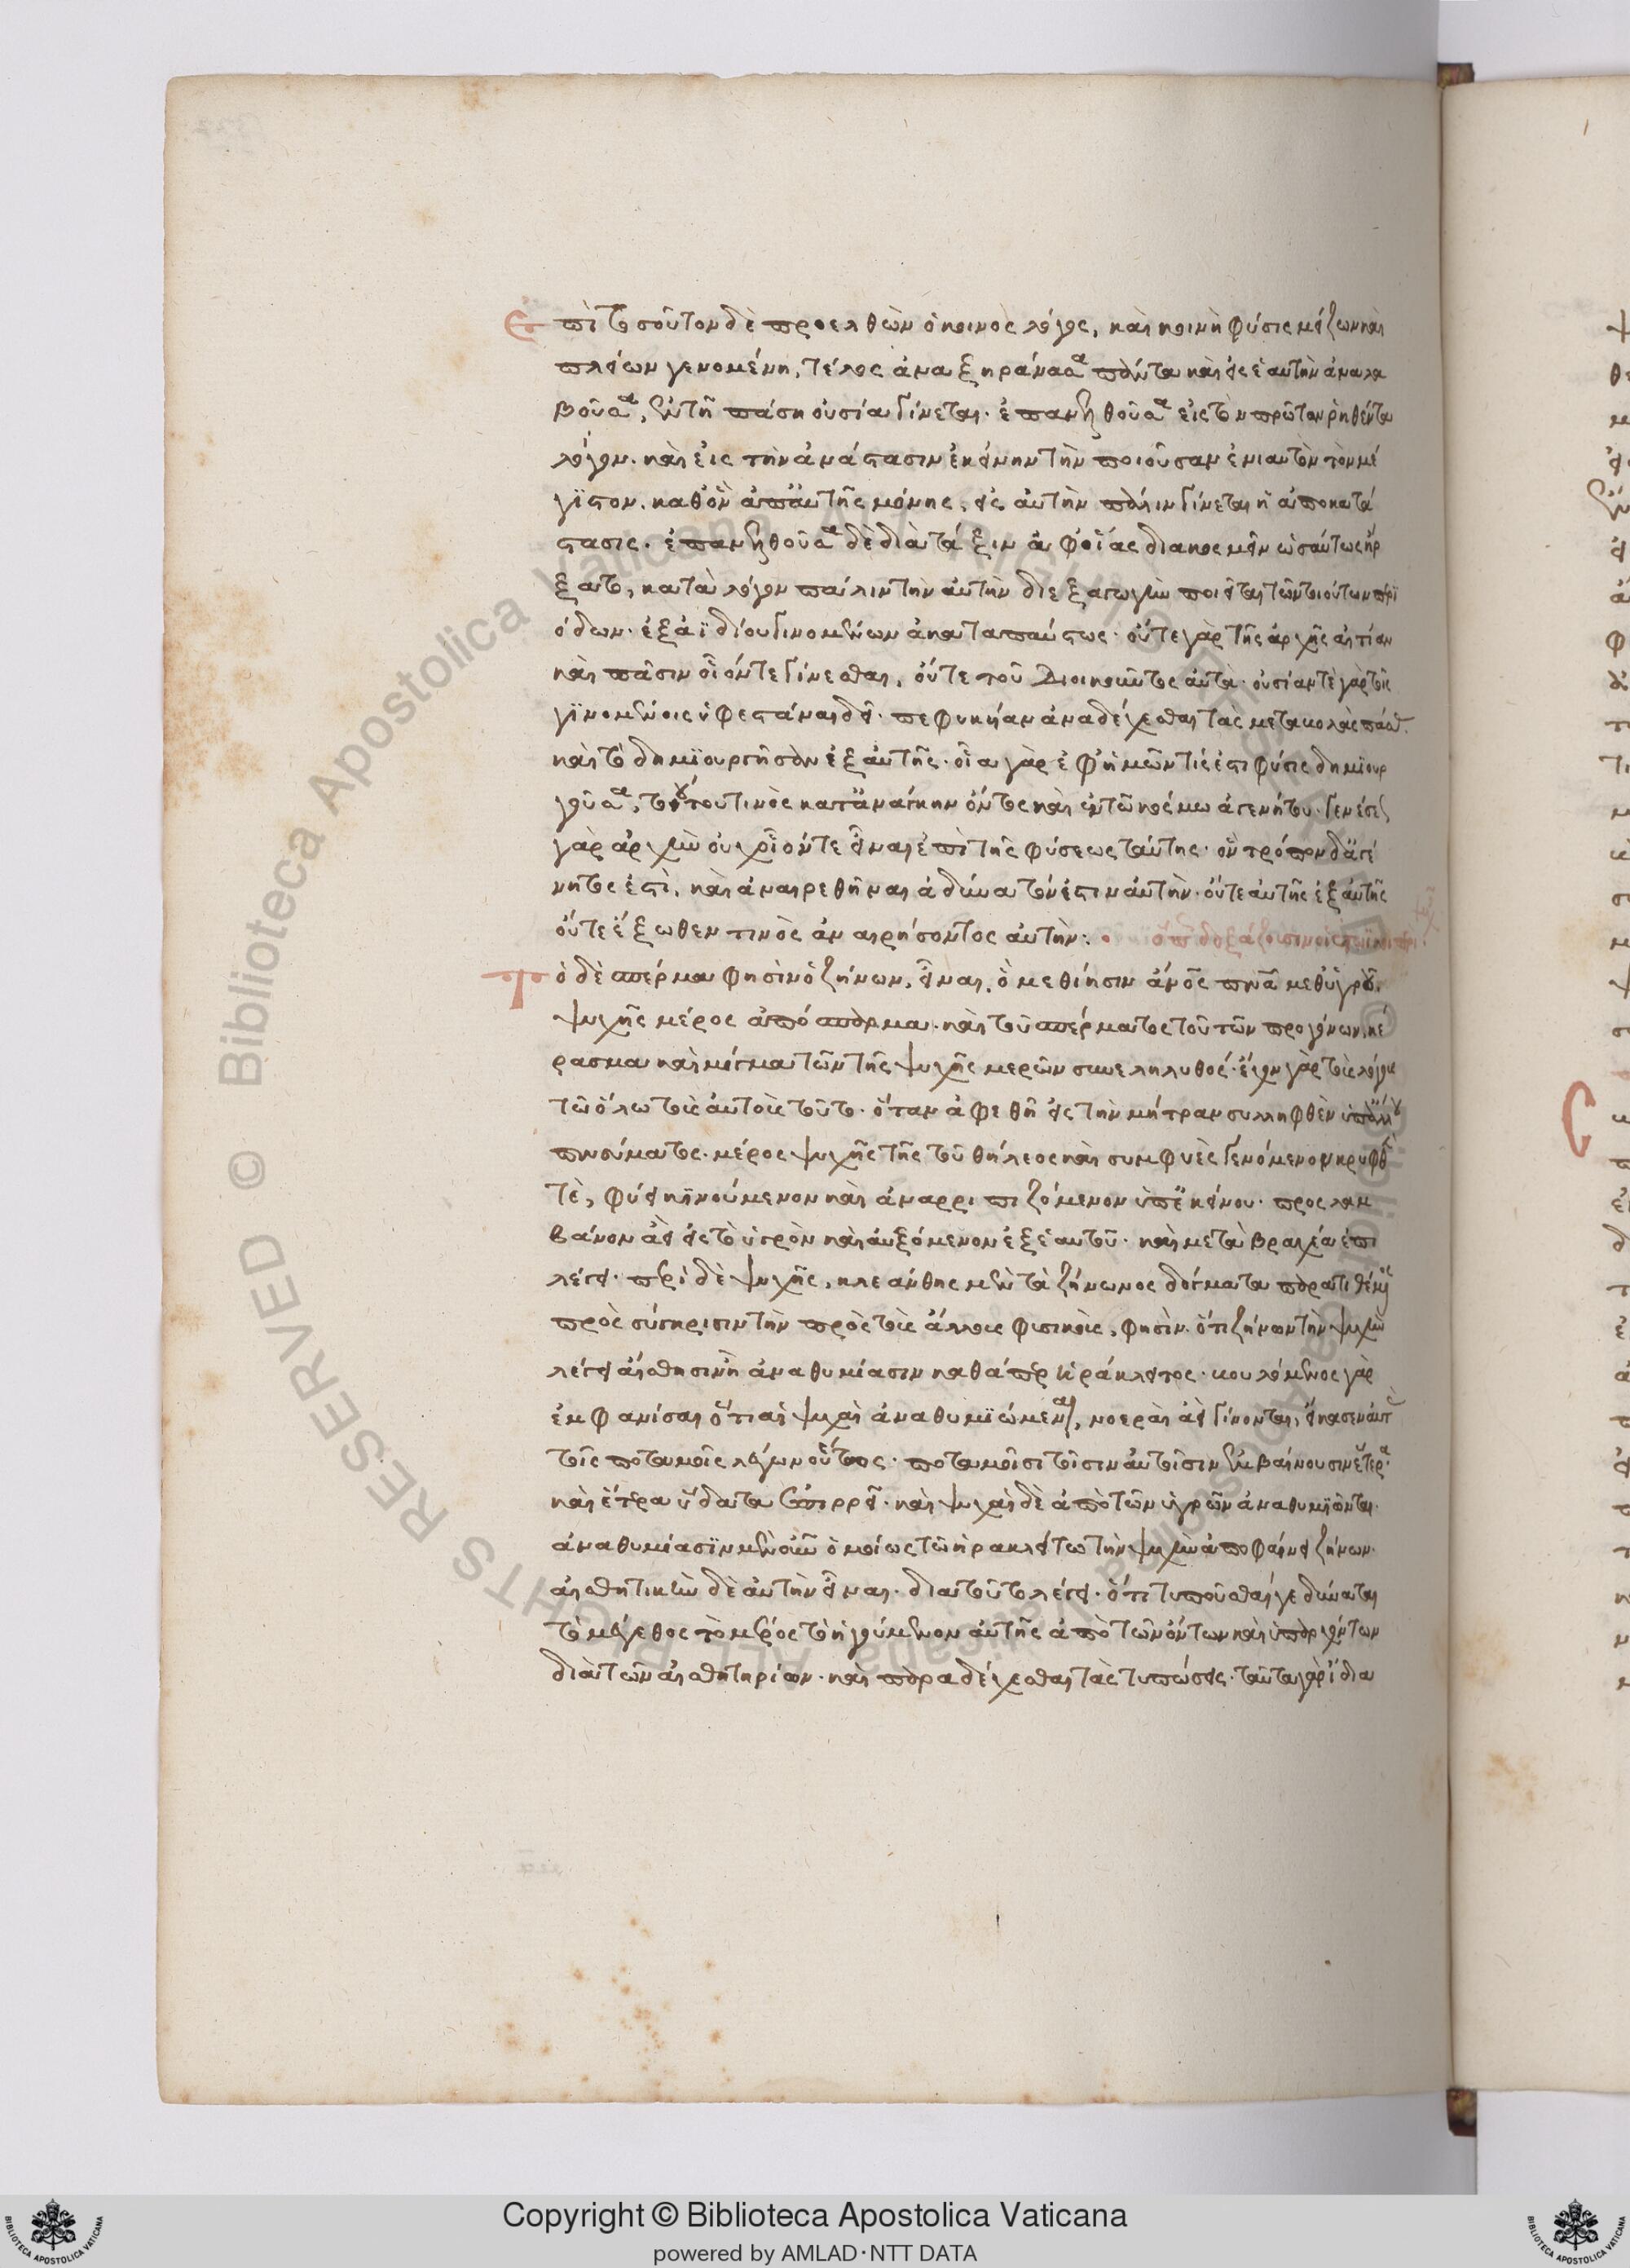 Ἐπὶ τοσοῦτον δὲ προελθὼν ὁ κοινὸς λόγος, καὶ κοινὴ φύσις μείζων καὶ
πλείων γενομένη, τέλος ἀναξηράνασα πάντα καὶ εἰς ἑαυτὴν ἀναλα
βοῦσα, ἐν τῇ πάσῃ οὐσίᾳ γίνεται· ἐπανελθοῦσα εἰς τὸν πρῶτον ῥηθέντα
λόγον. καὶ εἰς τὴν ἀνάστασιν ἐκείνην τὴν ποιοῦσαν ἐνιαυτὸν τὸν μέ
γιστον. καθ' ὃν ἀπ' αὐτῆς μόνης, εἰς αὐτὴν πάλιν γίνεται ἡ ἀποκατά
στασις. ἐπανελθοῦσα δὲ διὰ τάξιν ἀφ' οἵας διακοσμεῖν ὡσαύτως ἤρ
ξατο, κατὰ λόγον πάλιν τὴν αὐτὴν διεξαγωγὴν ποιεῖται τῶν τοιούτων περι
όδων· ἐξ ἀϊδίου γινομένων ἀκαταπαύστως· οὔτε γὰρ τῆς ἀρχῆς αἰτίαν
καὶ πᾶσιν οἷόν τε γίνεσθαι, οὔτε τοῦ διοικοῦντος αὐτά· οὐσίαν τε γὰρ τοῖς
γινομένοις ὑφεστάναι δεῖ· πεφυκῆαν ἀναδέχεσθαι τὰς μεταβολὰς πάσας.
καὶ τὸ δημιουργῆσον ἐξ αὐτῆς· οἵα γὰρ ἐφ' ἡμῶν τίς ἐστι φύσις δημιουρ
γοῦσα, τοιούτου τινὸς κατ' ἀνάγκην ὄντος καὶ ἐν τῷ κόσμω ἀγενήτου· γενέσεως
γὰρ ἀρχὴν οὐχ οἷόν τε εἶναι ἐπὶ τῆς φύσεως ταύτης· ὃν τρόπον δ' ἀγέ
νητός ἐστι, καὶ ἀναιρεθῆναι ἀδύνατόν ἐστιν αὐτήν· οὔτε αὐτῆς ἐξ αὐτῆς
οὔτε ἔξωθεν τινὸς ἀναιρήσοντος αὐτήν:
Τὸ δὲ σπέρμα φησὶν ὁ ζήνων, εἶναι, ὃ μεθίησιν ἄνος πνα μεθ' ὑγροῦ,
ψυχῆς μέρος ἀπόσπασμα· καὶ τοῦ σπέρματος τοῦ τῶν προγόνων, κέ
ρασμα καὶ μίγμα τῶν τῆς ψυχῆς μερῶν συνεληλυθός· ἔχον γὰρ τοὺς λόγους
τῶ ὅλω τοὺς αὐτοὺς τοῦτο· ὅταν ἀφεθῆ εἰς τὴν μήτραν συλληφθὲν ὑπ' ἄλλου
πνεύματος· μέρος ψυχῆς τῆς τοῦ θήλεος καὶ συμφυὲς γενόμενον κρυφθέν
τε, φύει κινούμενον καὶ ἀναρριπιζόμενον ὑπ' ἐκείνου· προσλαμ
βάνον ἀεὶ εἰς τὸ ὑγρὸν καὶ αὐξόμενον ἐξ ἑαυτοῦ· καὶ μετὰ βραχέα ἐπι
λέγει· περὶ δὲ ψυχῆς, κλεάνθης μὲν τὰ ζήνωνος δόγματα παρατιθέμενος
πρὸς σύγκρισιν τὴν πρὸς τοὺς ἄλλους φυσικούς, φησὶν. ὅτι ζήνων τὴν ψυχὴν
λέγει αἴσθησιν ἢ ἀναθυμίασιν καθάπερ ἡράκλειτος· βουλόμενος γὰρ
ἐμφανίσαι ὅτι αἱ ψυχαὶ ἀναθυμιώμεναι, νοεραὶ ἀεὶ γίνονται, εἴκασεν αὐτὰς
τοῖς ποταμοῖς λέγων οὕτως· ποταμοῖσι τοῖσιν αὐτοῖσιν ἐμβαίνουσιν ἕτερα
καὶ ἕτερα ὕδατα ἐπιρρεῖ· καὶ ψυχαὶ δὲ ἀπὸ τῶν ὑγρῶν ἀναθυμιῶνται·
ἀναθυμίασιν μὲν οὖν ὁμοίως τῶ ἡρακλείτω τὴν ψυχὴν ἀποφαίνει ζήνων·
αἰσθητικὴν δὲ αὐτὴν εἶναι· διὰ τοῦτο λέγει· ὅτι τυποῦσθαί γε δύναται
τὸ μέγεθος τὸ μέρος τὸ ἡγούμενον αὐτῆς ἀπὸ τῶν ὄντων καὶ ὑπαρχόντων
διὰ τῶν αἰσθητηρίων· καὶ παραδέχεσθαι τὰς τυπώσεις· ταῦτα γὰρ ἴδια
Copyright © Biblioteca Apostolica Vaticana
powered by AMLAD·NTT DATA